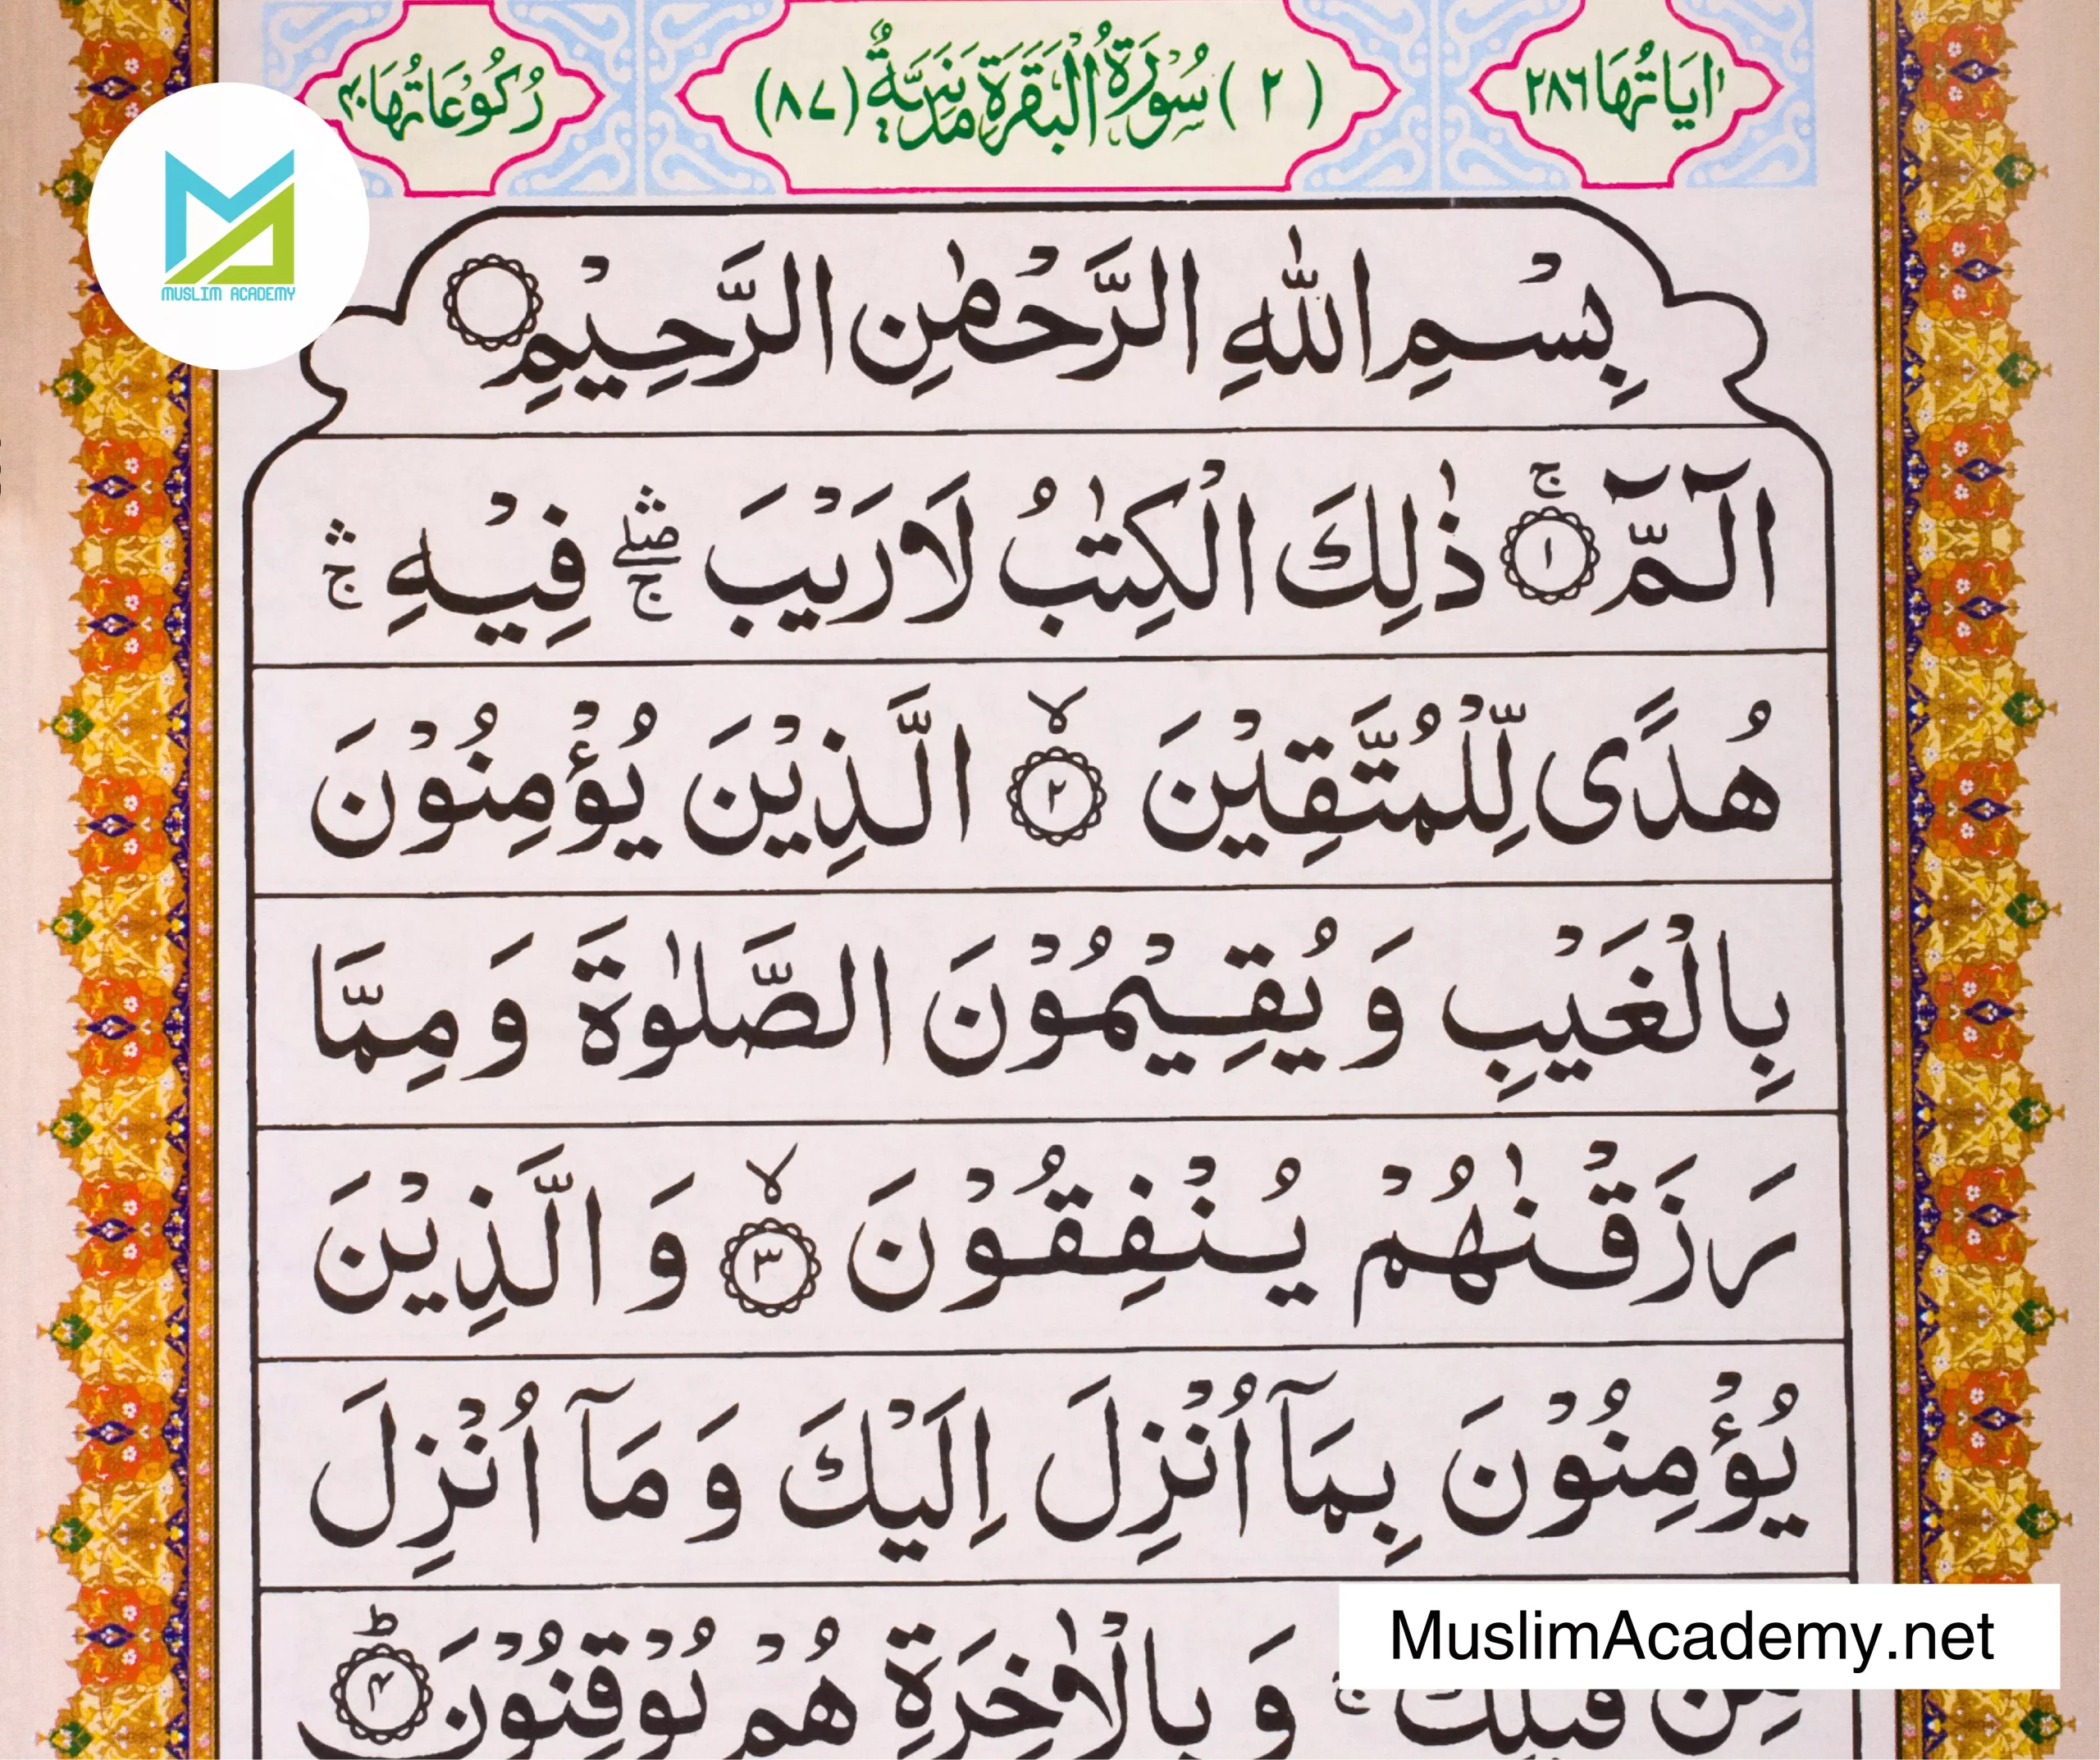 اٰيَاتُهَا ٢٨٦
(٢) سُوْرَةُ الْبَقَرَةِ مَدَنِيَّةٌ (٨٧)
رُكُوْعَاتُهَا ٤٠
MUSLIM ACADEMY
بِسْمِ اللّٰهِ الرَّحْمٰنِ الرَّحِيْمِ
الٓمّٓ ۚ﴿١﴾ ذٰلِكَ الْكِتٰبُ لَا رَيْبَ ۛۖۚ فِيْهِ ۛۚ
هُدًى لِّلْمُتَّقِيْنَ ۙ﴿٢﴾ الَّذِيْنَ يُؤْمِنُوْنَ
بِالْغَيْبِ وَ يُقِيْمُوْنَ الصَّلٰوةَ وَ مِمَّا
رَزَقْنٰهُمْ يُنْفِقُوْنَ ۙ﴿٣﴾ وَ الَّذِيْنَ
يُؤْمِنُوْنَ بِمَآ اُنْزِلَ اِلَيْكَ وَ مَآ اُنْزِلَ
مِنْ قَبْلِكَ ۚ وَ بِالْاٰخِرَةِ هُمْ يُوْقِنُوْنَ ؕ﴿٤﴾
MuslimAcademy.net